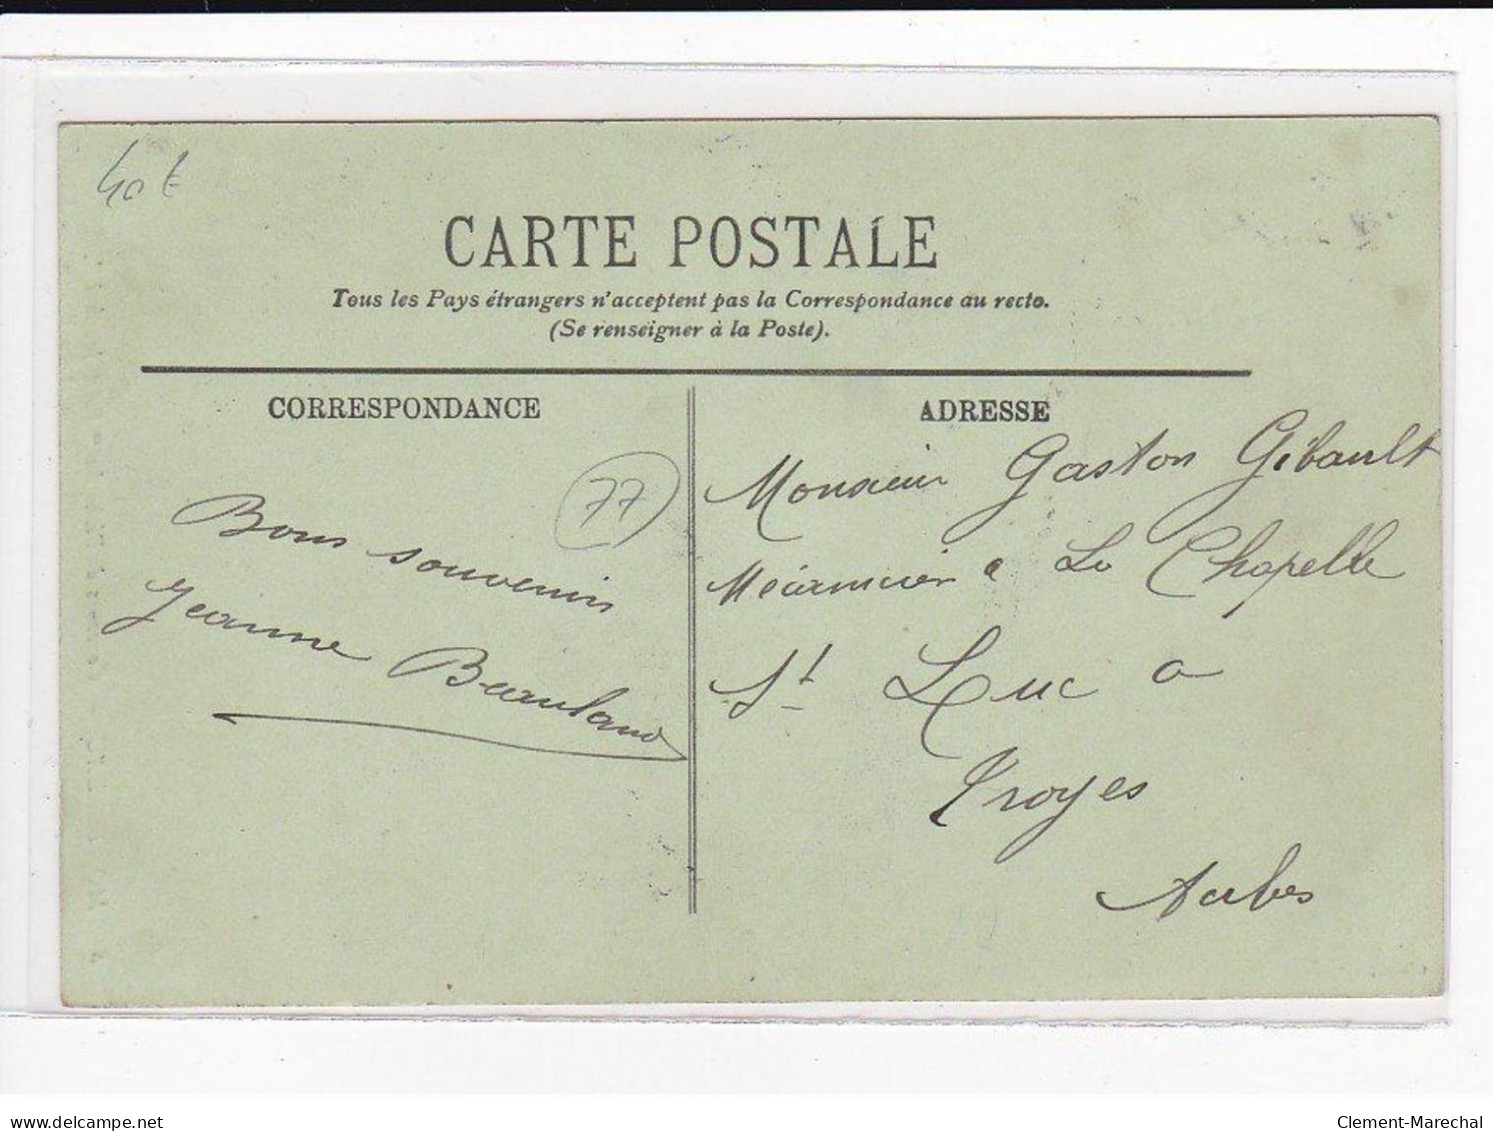 40 €
CARTE POSTALE
Tous les Pays étrangers n'acceptent pas la Correspondance au recto.
(Se renseigner à la Poste).
CORRESPONDANCE
77
Bons souvenirs
Jeanne Beauland
ADRESSE
Monsieur Gaston Gibault
Mécanicien a La Chapelle
St Luc a
Troyes
Aube
www.delcampe.net
Clement-Marechal